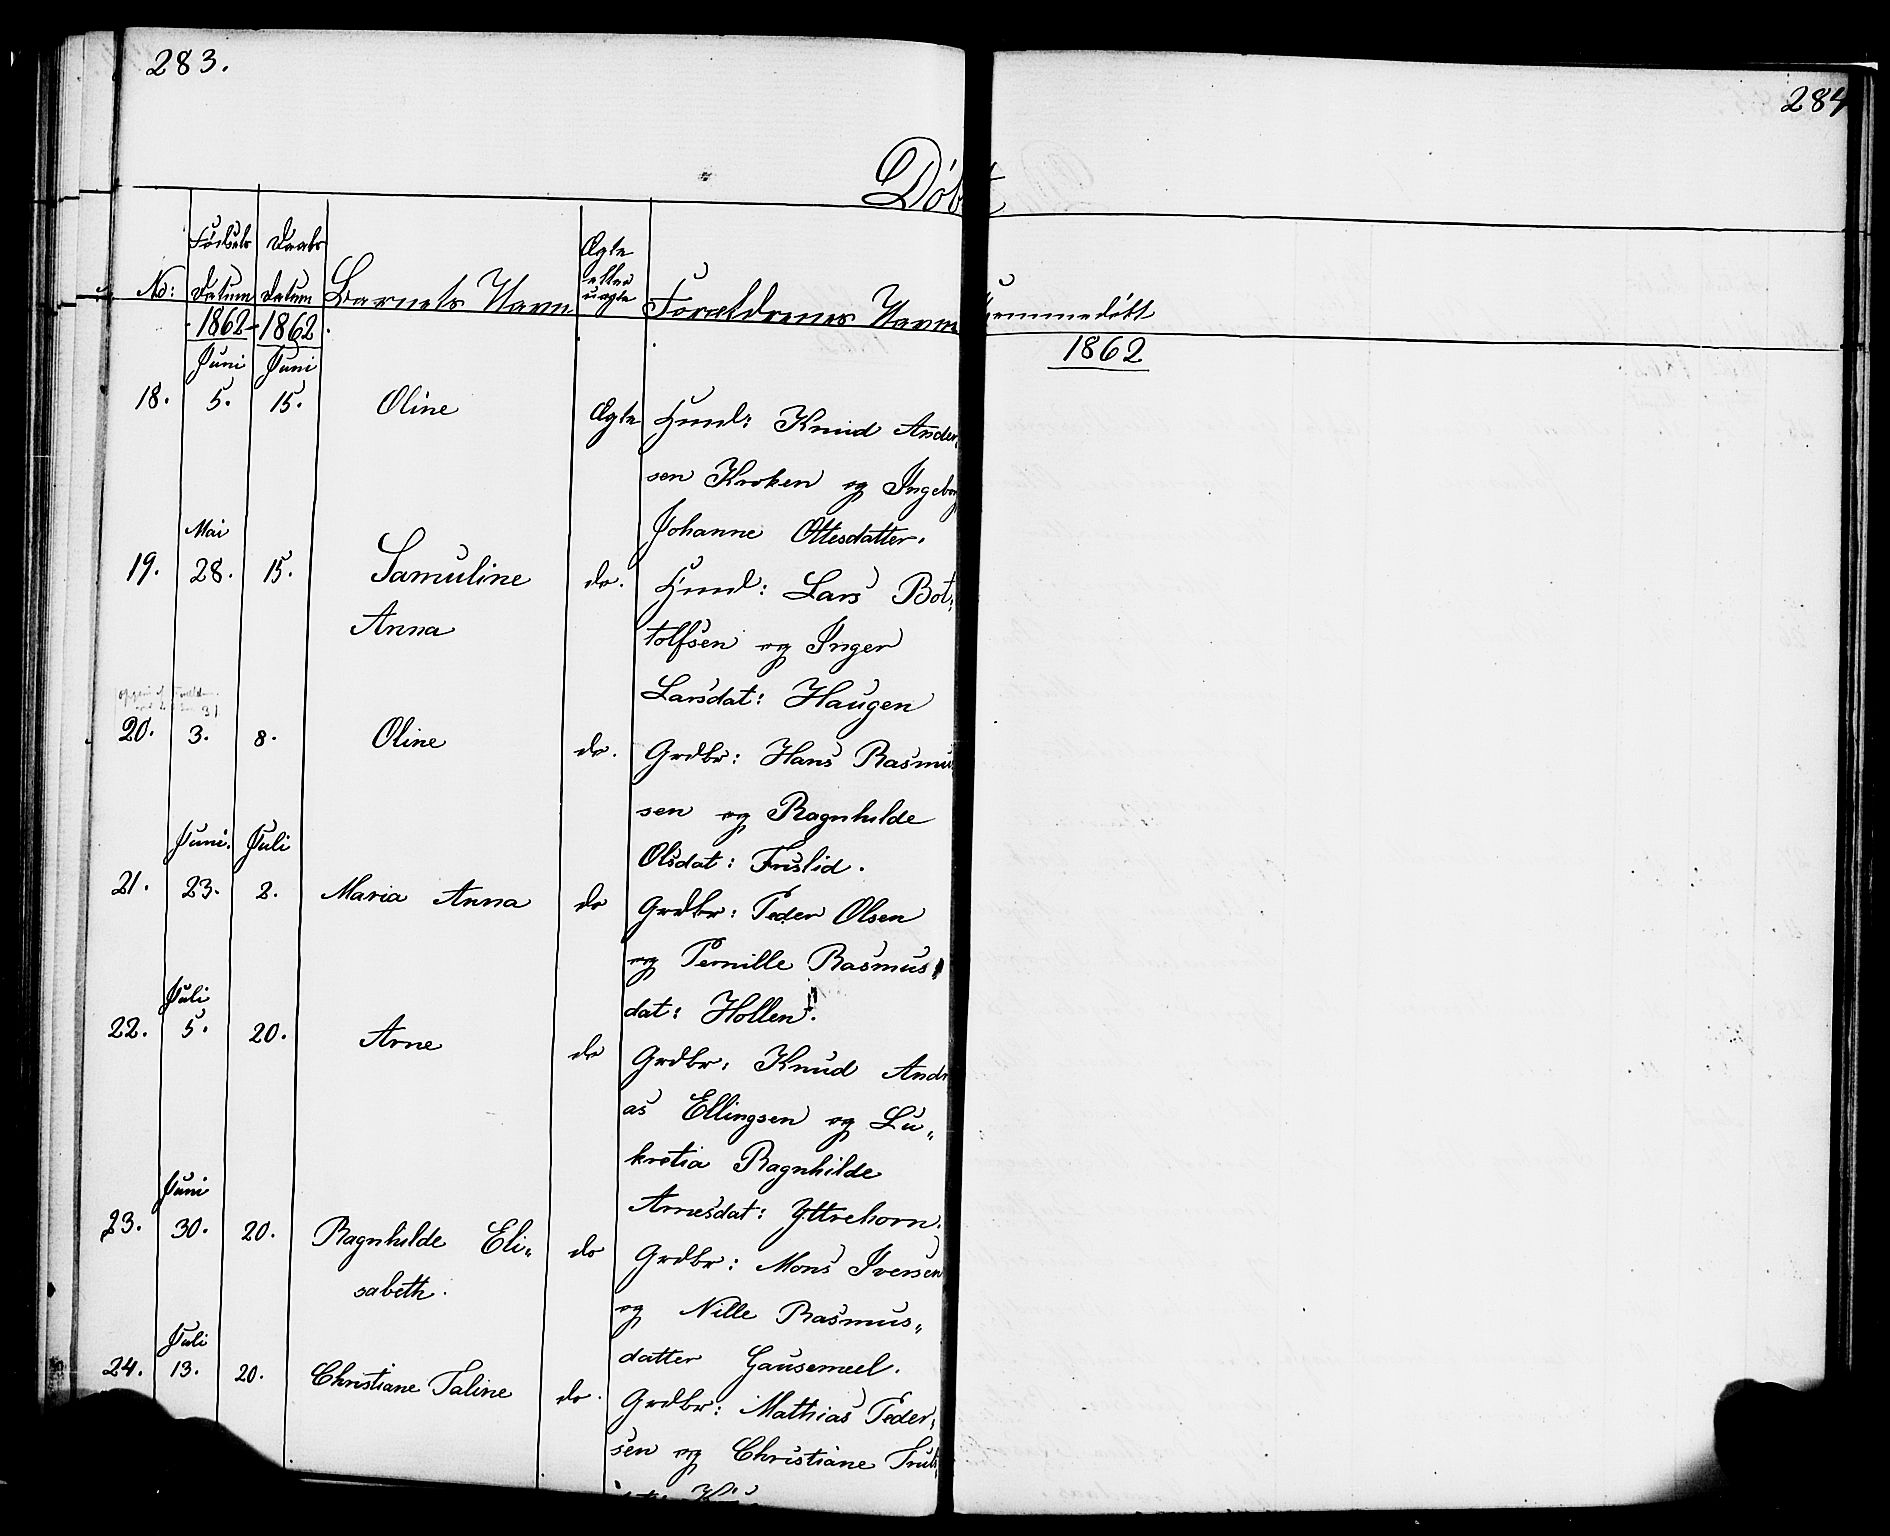 283.
284
Døbt
No: Fødsels Datum Daabs Datum Barnets Navn Ægte eller uægte Forældrenes Navn Hjemmedøbt
1862 1862 1862
Juni Juni
18. 5. 15. Oline Ægte Huusm: Knud Ander,
sen Kroken og Ingeborg
Johanne Ottesdatter.
Mai
19. 28. 15. Samuline do. Huusm: Lars Bot,
Anna tolfsen og Inger
Larsdat: Haugen
20. 3. 8. Oline do. Grdbr: Hans Rasmus
sen og Ragnhilde
Olsdat: Fruslid.
Juni. Juli
21. 23. 2. Maria Anna do Grdbr: Peder Olsen
og Pernille Rasmus,
dat: Hollen.
Juli
22. 5. 20. Arne do Grdbr: Knud Andr
as Ellingsen og Lu„
kretia Ragnhilde
Arnesdat: Yttrehorn.
Juni
23. 30. 20. Ragnhilde Eli„ do Grdbr: Mons Iversen
sabeth. og Nille Rasmus„
datter Gausemeel.
Juli
24. 13. 20. Christiane Taline do. Grdbr: Mathias Peder,
sen og Christiane